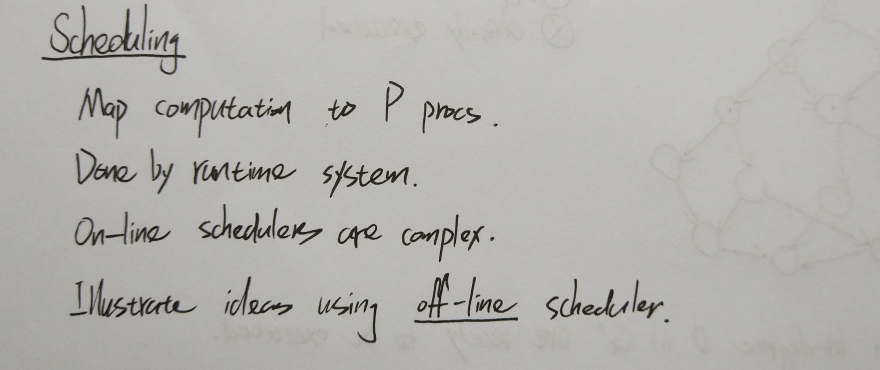 Scheduling
Map computation to P procs.
Done by runtime system.
On-line schedulers are complex.
Illustrate ideas using off-line scheduler.